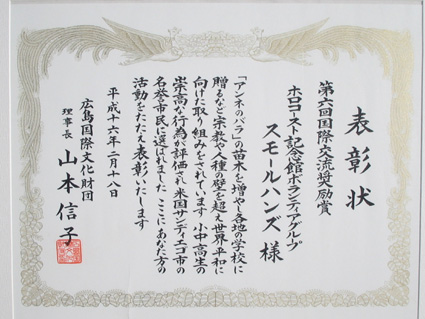 表彰状
第六回国際交流奨励賞
ホロコースト記念館ボランティアグループ
スモールハンズ 様
「アンネのバラ」の苗木を増やし各地の学校に
贈るなど宗教や人種の壁を超え世界平和に
向けた取り組みをされています 小中高生の
崇高な行為が評価され米国サンディエゴ市の
名誉市民に選ばれました ここにあなた方の
活動をたたえ表彰いたします
平成十六年二月十八日
広島国際文化財団
理事長 山本信子